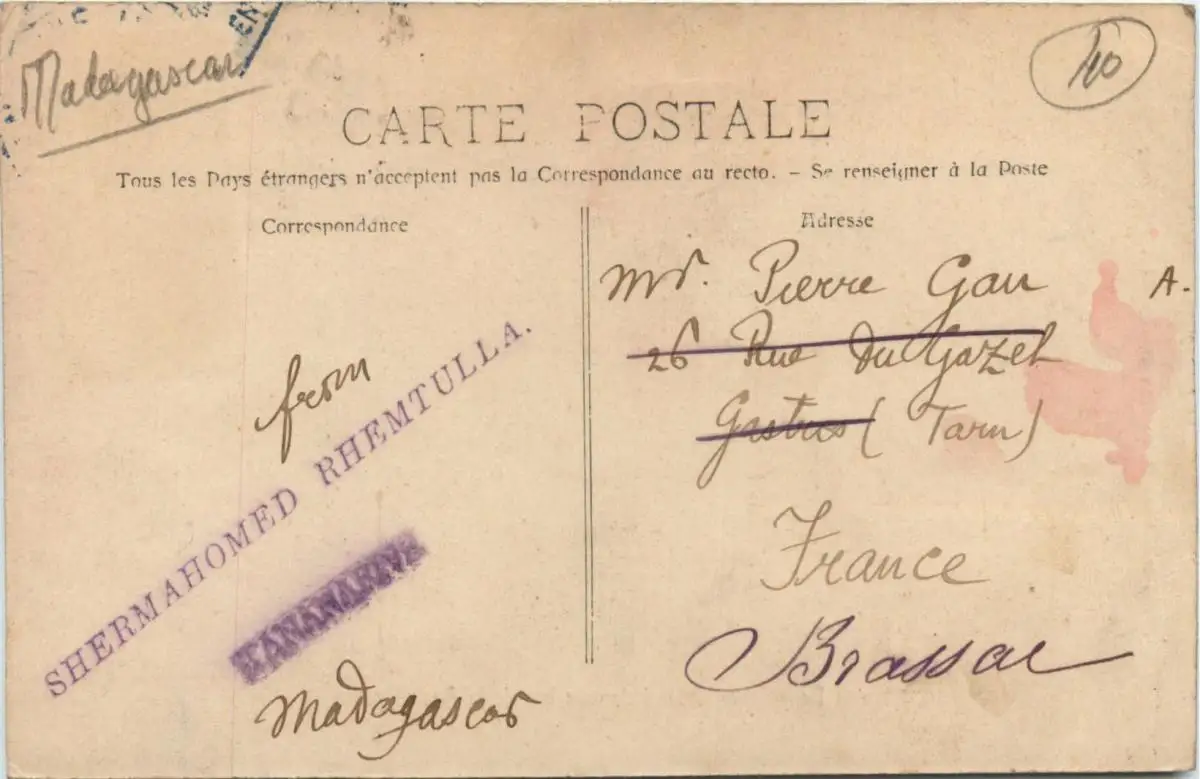 Madagascar
40
CARTE POSTALE
Tous les Pays étrangers n'acceptent pas la Correspondance au recto. – Se renseigner à la Poste
Correspondance
from
SHERMAHOMED RHEMTULLA.
TANANARIVE
Madagascar
Adresse
Mr. Pierre Gau
A.
26 Rue du Gazel
Gastres (Tarn)
France
Brassac